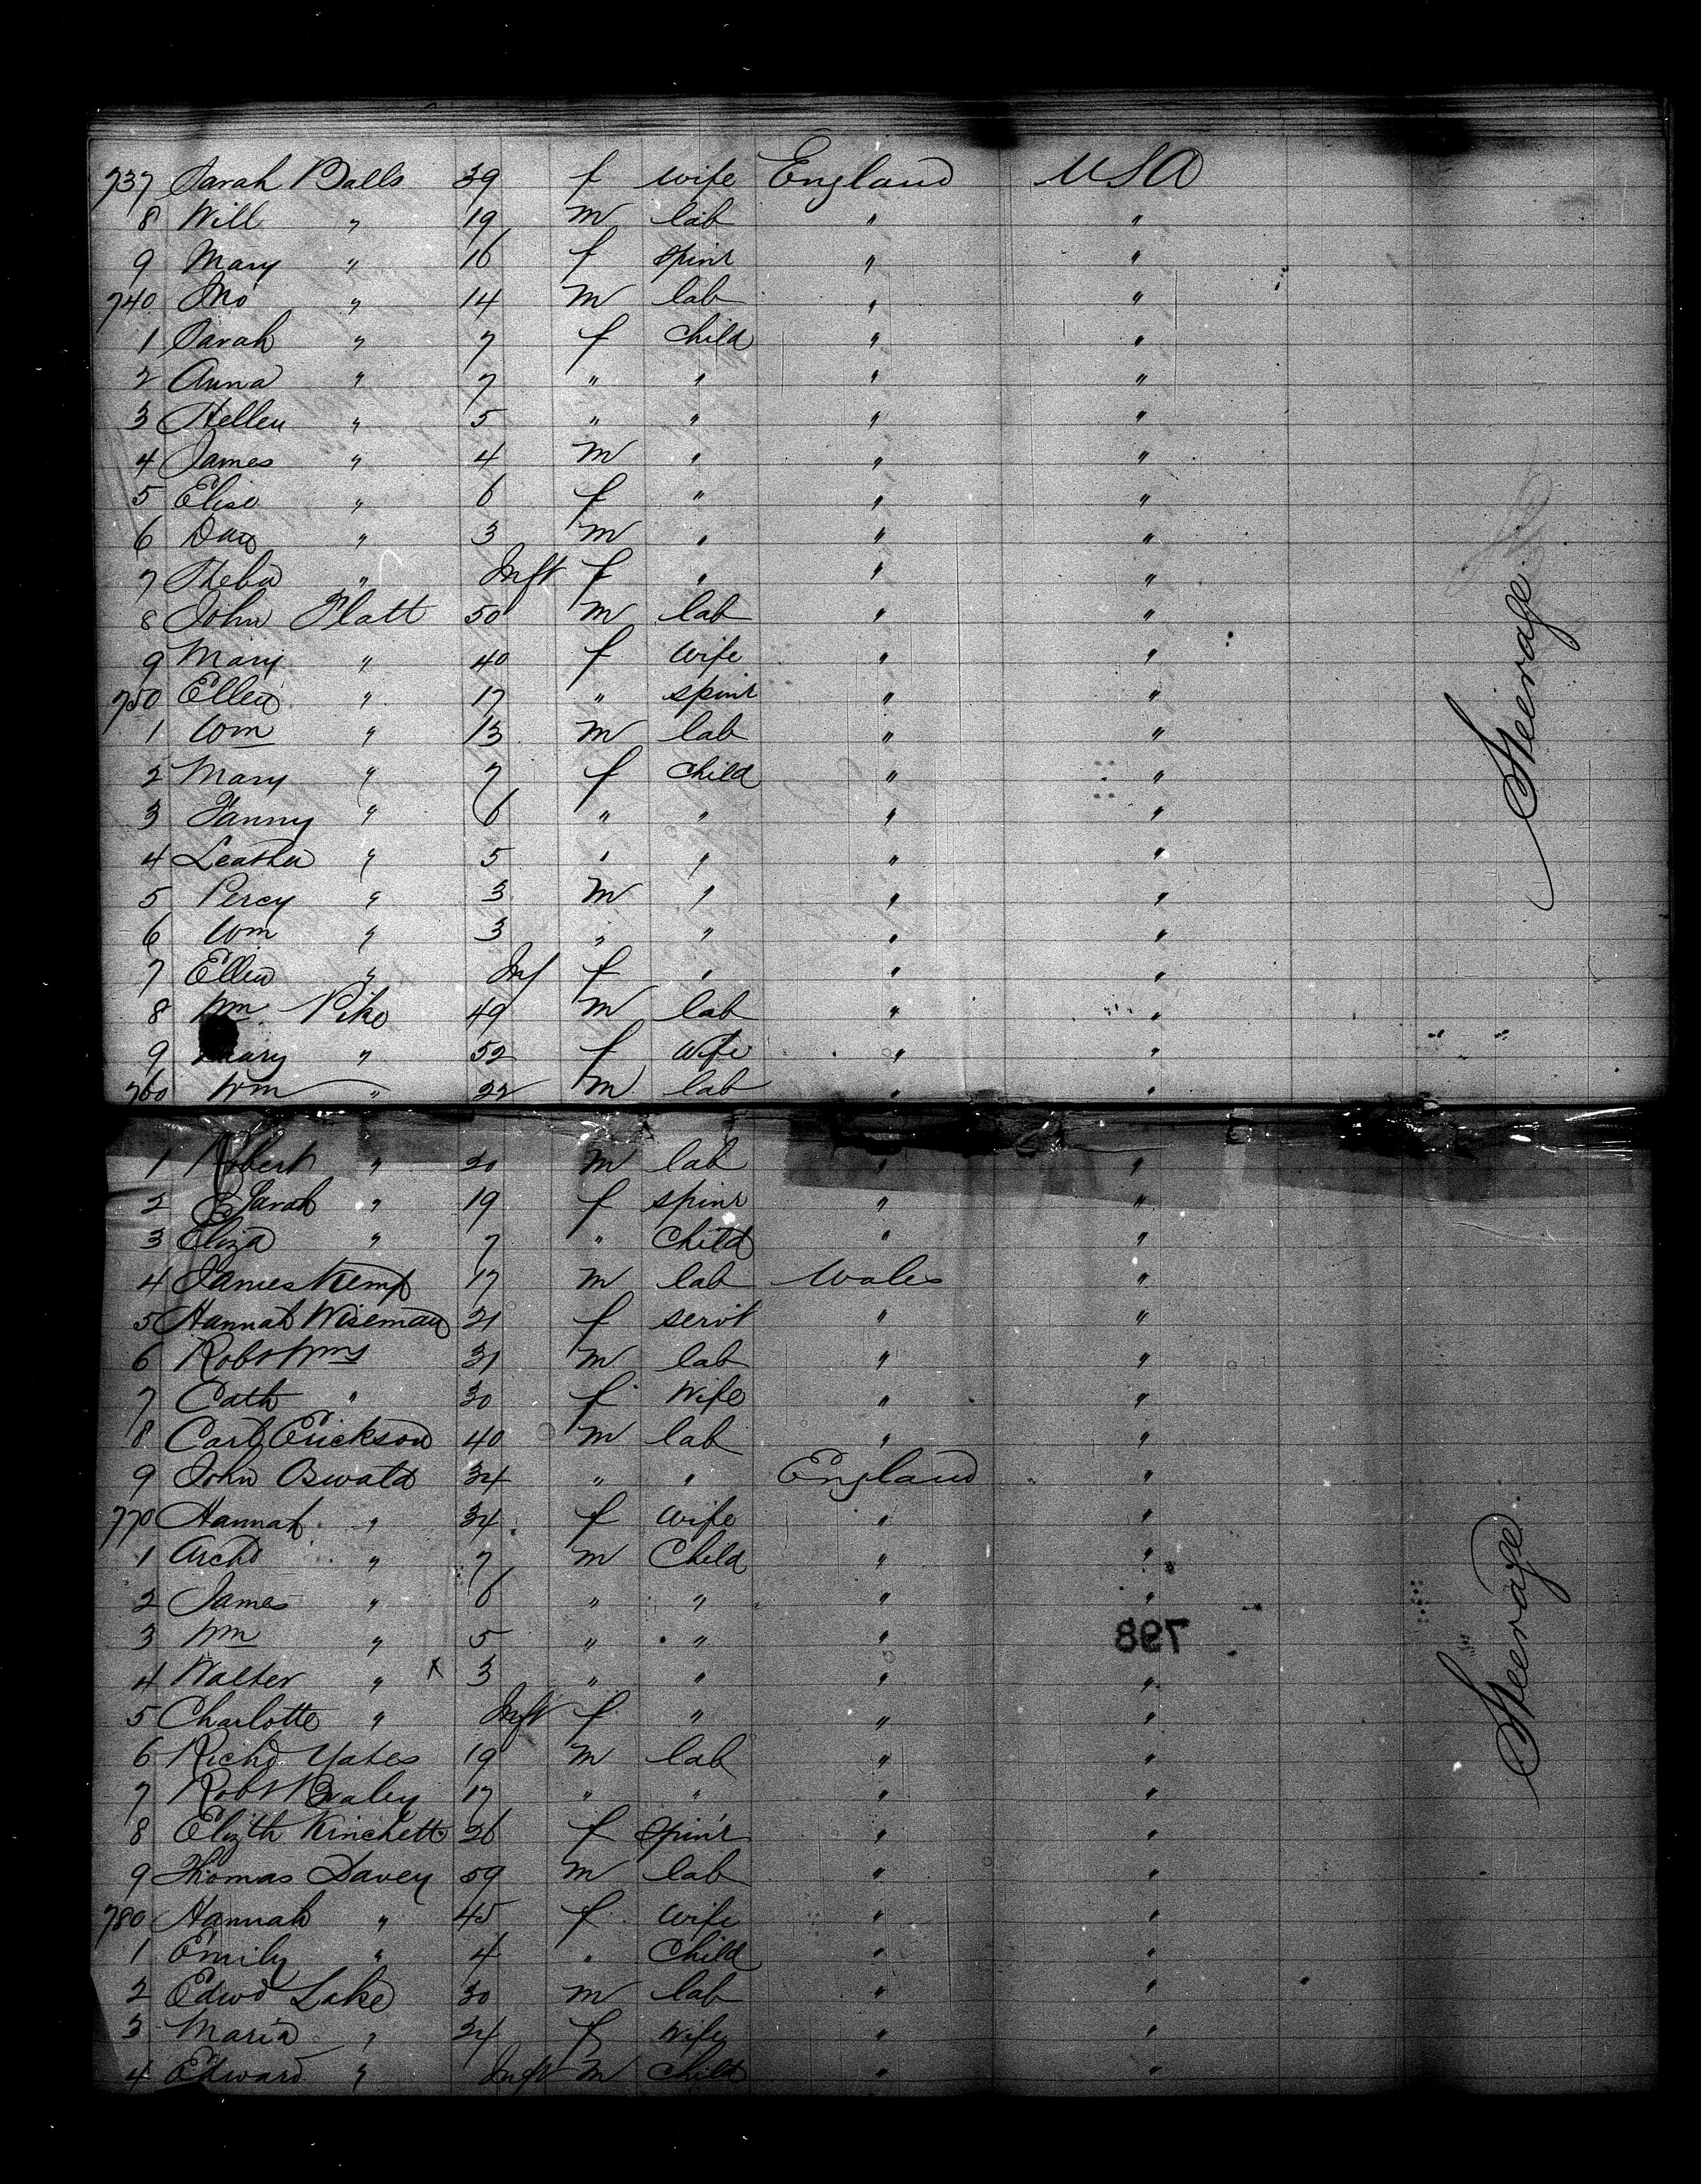 737 Sarah Balls 39 f wife England USA
8 Will " 19 m lab " "
9 Mary " 16 f spinr " "
740 Jno " 14 m lab " "
1 Sarah " 7 f child " "
2 Anna " 7 " " " "
3 Hellen " 5 " " " "
4 James " 4 m " " "
5 Elise " 6 f " " "
6 Dan " 3 m " " "
7 " Inft f " " "
8 John Platt 50 m lab " "
9 Mary " 40 f wife " "
750 Ellen " 17 " spinr " "
1 Wm " 13 m lab " "
2 Mary " 7 f child " "
3 Fanny " 6 " " " "
4 Leatha " 5 " " " "
5 Percy " 3 m " " "
6 Wm " 3 " " " "
7 Ellen " Inf f " " "
8 Wm Pike 49 m lab " "
9 Mary " 52 f wife " "
760 Wm " 22 m lab " "
Steerage.
1 Robert " 20 m lab " "
2 Sarah " 19 f spinr " "
3 Eliza " 7 " child " "
4 James Kemp 17 m lab Wales "
5 Hannah Wiseman 21 f servt " "
6 Robt Wms 31 m lab " "
7 Cath " 30 f wife " "
8 Carl Erickson 40 m lab " "
9 John Oswald 34 " " England "
770 Hannah " 34 f wife " "
1 Archd " 7 m child " "
2 James " 6 " " " "
3 Wm " 5 " " " "
798
4 Walter " x 3 " " " "
5 Charlotte " Inft f " " "
6 Richd Yates 19 m lab " "
7 Robt 17 " " " "
8 Elizth Kinchett 26 f spinr " "
9 Thomas Davey 59 m lab " "
780 Hannah " 45 f wife " "
1 Emily " 4 " child " "
2 Edwd Lake 30 m lab " "
3 Maria " 24 f wife " "
4 Edward " Inft m child " "
Steerage.